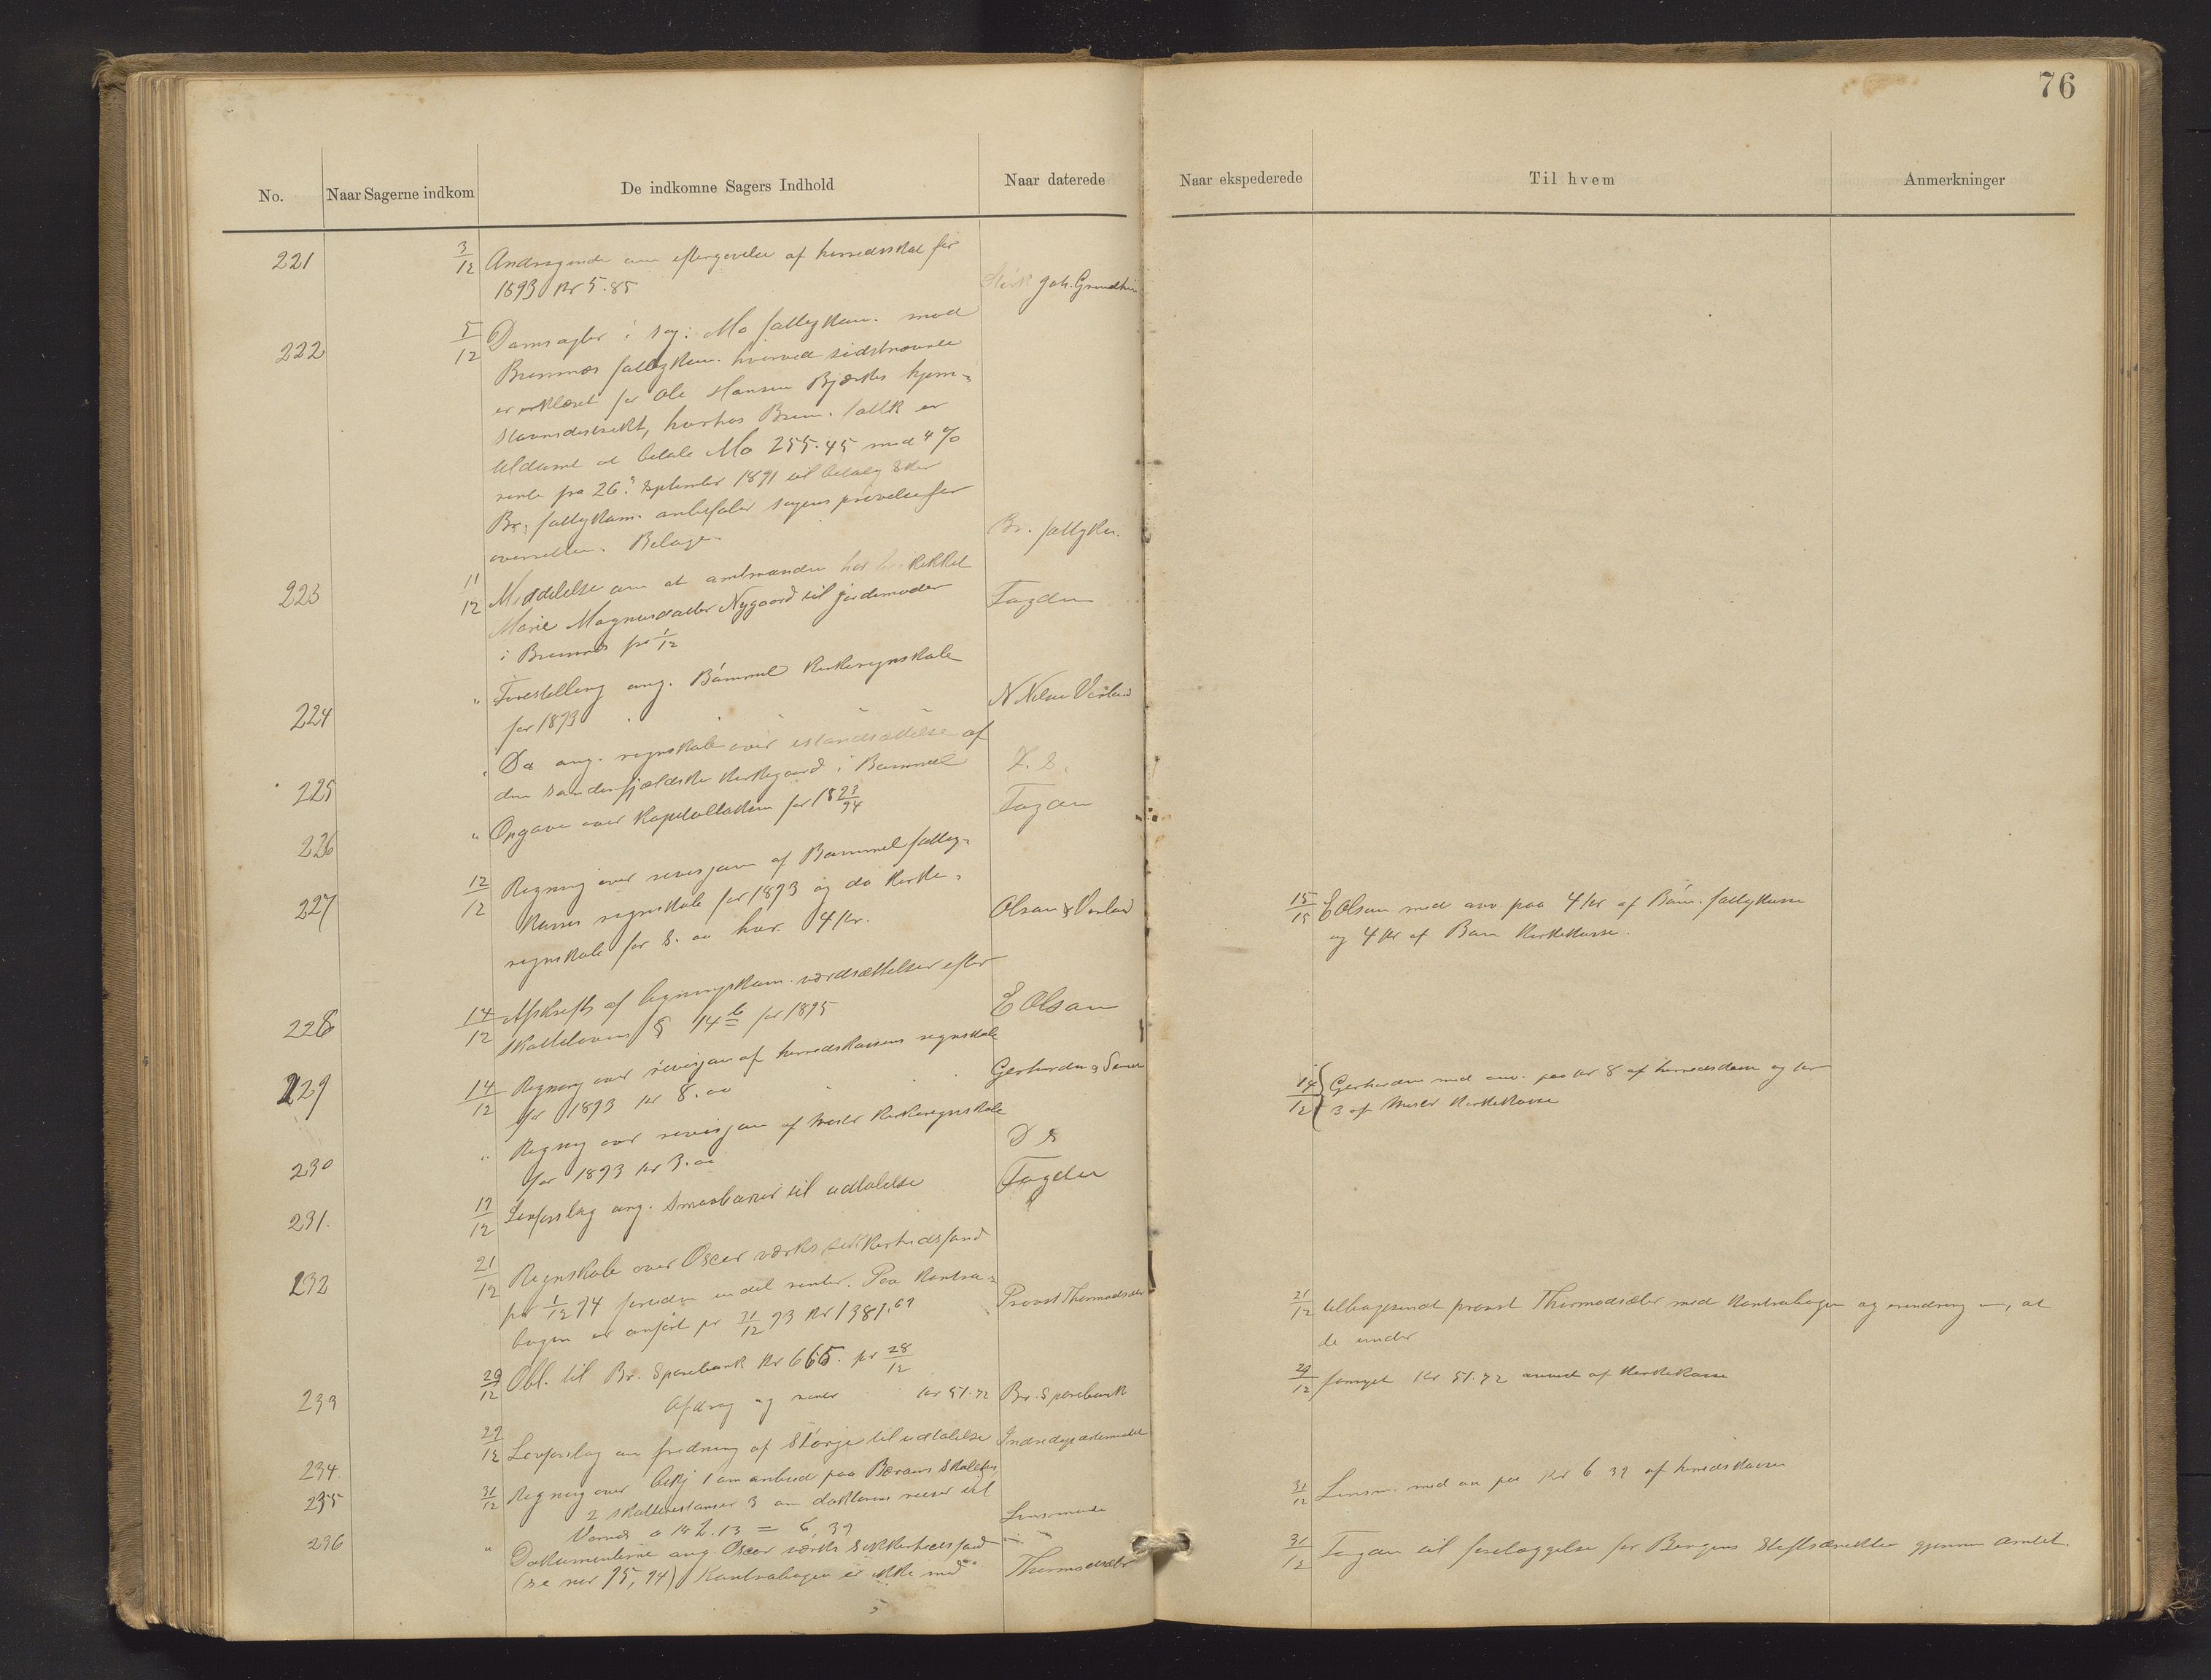 76
No. Naar Sagerne indkom De indkomne Sagers Indhold Naar daterede Naar ekspederede Til hvem Anmerkninger
221 3/12 Andragende om eftergivelse af herredsskat for
1893 Kr 5.85 Joh.
222 5/12 Domsagter i sag: Mo fattigkom. mod
Bremnæs fattigkom. hvorved sidstnævnte
er erklæret for Ole Hansen Bjerkes hjem-
stavnsdistrikt, hvorhos Brem. fattk er
tildømt at betale Mo 255.45 med 4 %
rente fra 26. September 1891 til betaling sker
Br. fattigkom. anbefaler sagens prøvelse for
overretten. Belage. Br. fattigkn.
223 11/12 Meddelelse om at amtmanden har beskikket
Marie Magnusdatter Nygaard til jordemoder
i Bremnes fra 1/12 Fogden
224 " Forestilling ang. Bømmel Kirkeregnskab
for 1893 N Nilsen Vorland
225 " Do ang. regnskab over istandsættelse af
den søndenfjeldske Kirkegaard i Bømmel D. S.
226 " Opgave over Kapitaltakten for 1893/94 Fogden
227 12/12 Regning over revisjon af Bømmel fattig-
kasses regnskab for 1893 og do Kirke-
regnskab for s. aa hver 4 kr. Olsen & Vorland
15/15 E Olsen med anv. paa 4 kr af Bøm. fattigkasse
og 4 kr af Bøm Kirkekasse.
228 14/12 Afskrift af ligningskom. værdsættelser efter
skattelovens § 14 b for 1895 E Olsen
229 14/12 Regning over revisjon af herredskassens regnskab
for 1893 kr 8.00 Gerhardsen &
14/12 Gerhardsen med anv. paa kr 8 af herredskassen og kr
3 af Kirkekasse
230 " Regning over revisjon af Kirkeregnskab
for 1893 kr 3.00 D S
231. 17/12 Lovforslag ang. Smaabaner til udtalelse Fogden
232 21/12 Regnskab over Oscar værks sikkerhedsfond
pr 1/12 94 foruden endel renter. Paa Kontra-
bogen er anført pr 31/12 93 Kr 1381.69 Provst Thormodsæter
21/12 tilbagesendt provst Thormodsæter med Kontrabogen og erindring om, at
de under
233 29/12 Obl. til Br. Sparebank Kr 665. pr 28/12
Afdrag og renter kr 51.72 Br. Sparebank
29/12 fornyet Kr. 51.72 anvist af Kirkekasse
234. 29/12 Lovforslag om fredning af Størje til udtalelse Indredepartementet
235 31/12 Regning over bekj 1 om anbud paa
2 skatterestanser 3 om doktorens reiser til
a kr 2.13 = 6,39 Lensmanden
31/12 Lensm. med an paa Kr 6.39 af herredskassen
236 " Dokumenterne ang. Oscar værks sikkerhedsfond
(se nr 95, 94) Kontrabogen er ikke med Thormodsæter
31/12 Fogden til forelæggelse for Bergens Stiftsdirektion gjennem amtet.